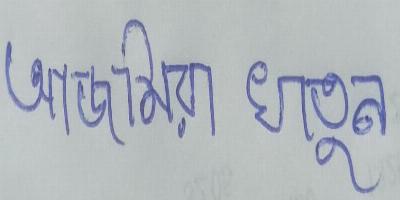 আজমিরা খাতুন